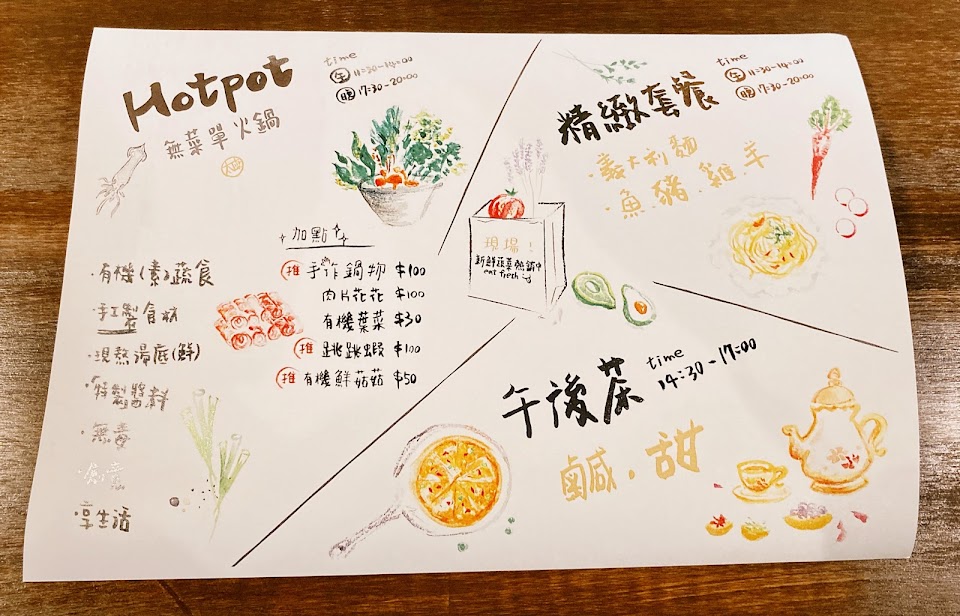 Hotpot
無菜單火鍋
time
午 11:30-14:00
晚 17:30-20:00
·有機(素)蔬食
·手工製食材
·現熬湯底(鮮)
·特製醬料
·無毒
·享生活
加點
推 手作鍋物 $100
肉片花花 $100
有機葉菜 $30
推 跳跳蝦 $100
推 有機鮮菇菇 $50
精緻套餐
time
午 11:30-14:00
晚 17:30-20:00
·義大利麵
·魚.豬.雞.羊
現場!
新鮮蔬菜熱銷中
eat fresh :)
午後茶
time
14:30-17:00
鹹.甜